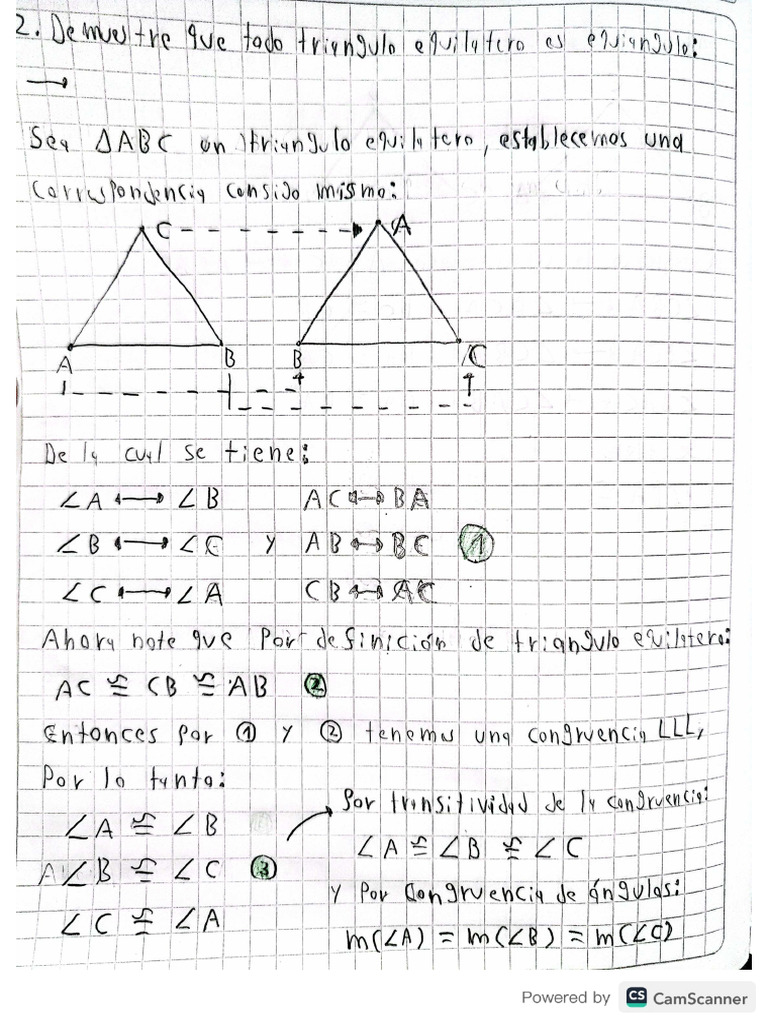 2. Demuestre que todo triangulo equilatero es equiangulo:
→
Sea ΔABC un triangulo equilatero, establecemos una
correspondencia consigo mismo:
C A
A B B C
De la cual se tiene:
∠A ↔ ∠B AC ↔ BA
∠B ↔ ∠C y AB ↔ BC ①
∠C ↔ ∠A CB ↔ AC
Ahora note que Por definición de triangulo equilatero:
AC ≅ CB ≅ AB ②
Entonces por ① y ② tenemos una congruencia LLL,
Por lo tanto:
∠A ≅ ∠B
∠B ≅ ∠C ③
∠C ≅ ∠A
Por transitividad de la congruencia:
∠A ≅ ∠B ≅ ∠C
y Por Congruencia de ángulos:
m(∠A) = m(∠B) = m(∠C)
Powered by CS CamScanner